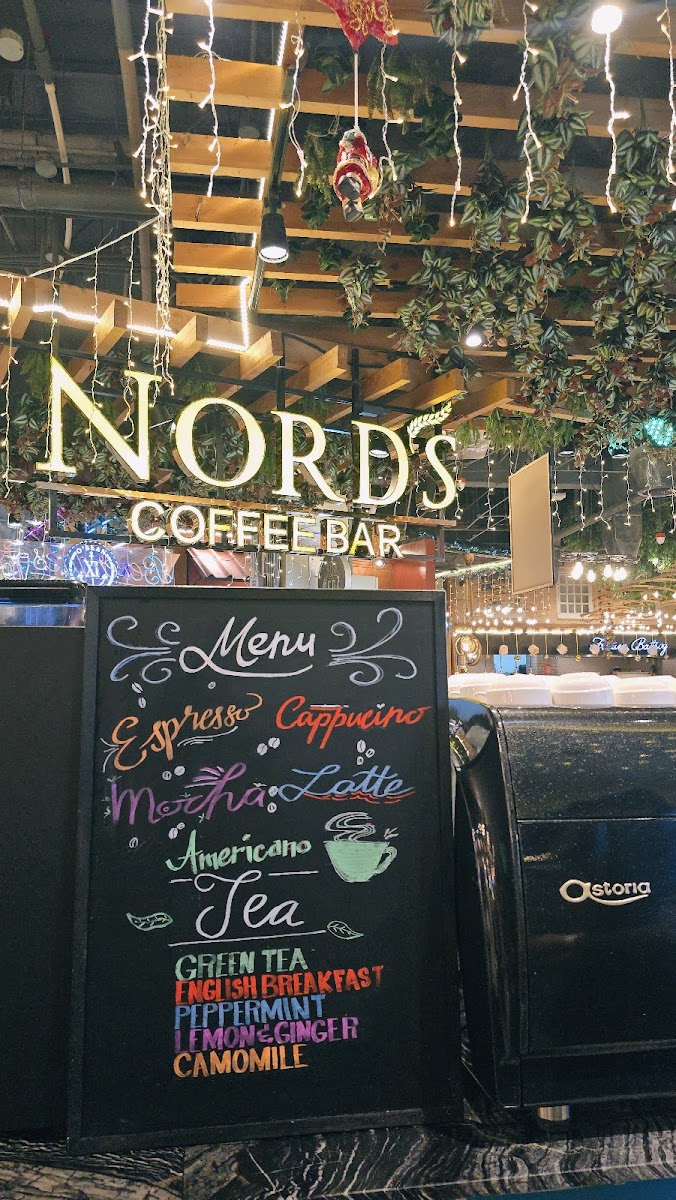 NORD'S
COFFEE BAR
Menu
Espresso Cappucino
Mocha Latte
Americano
Tea
GREEN TEA
ENGLISH BREAKFAST
PEPPERMINT
LEMON & GINGER
CAMOMILE
astoria